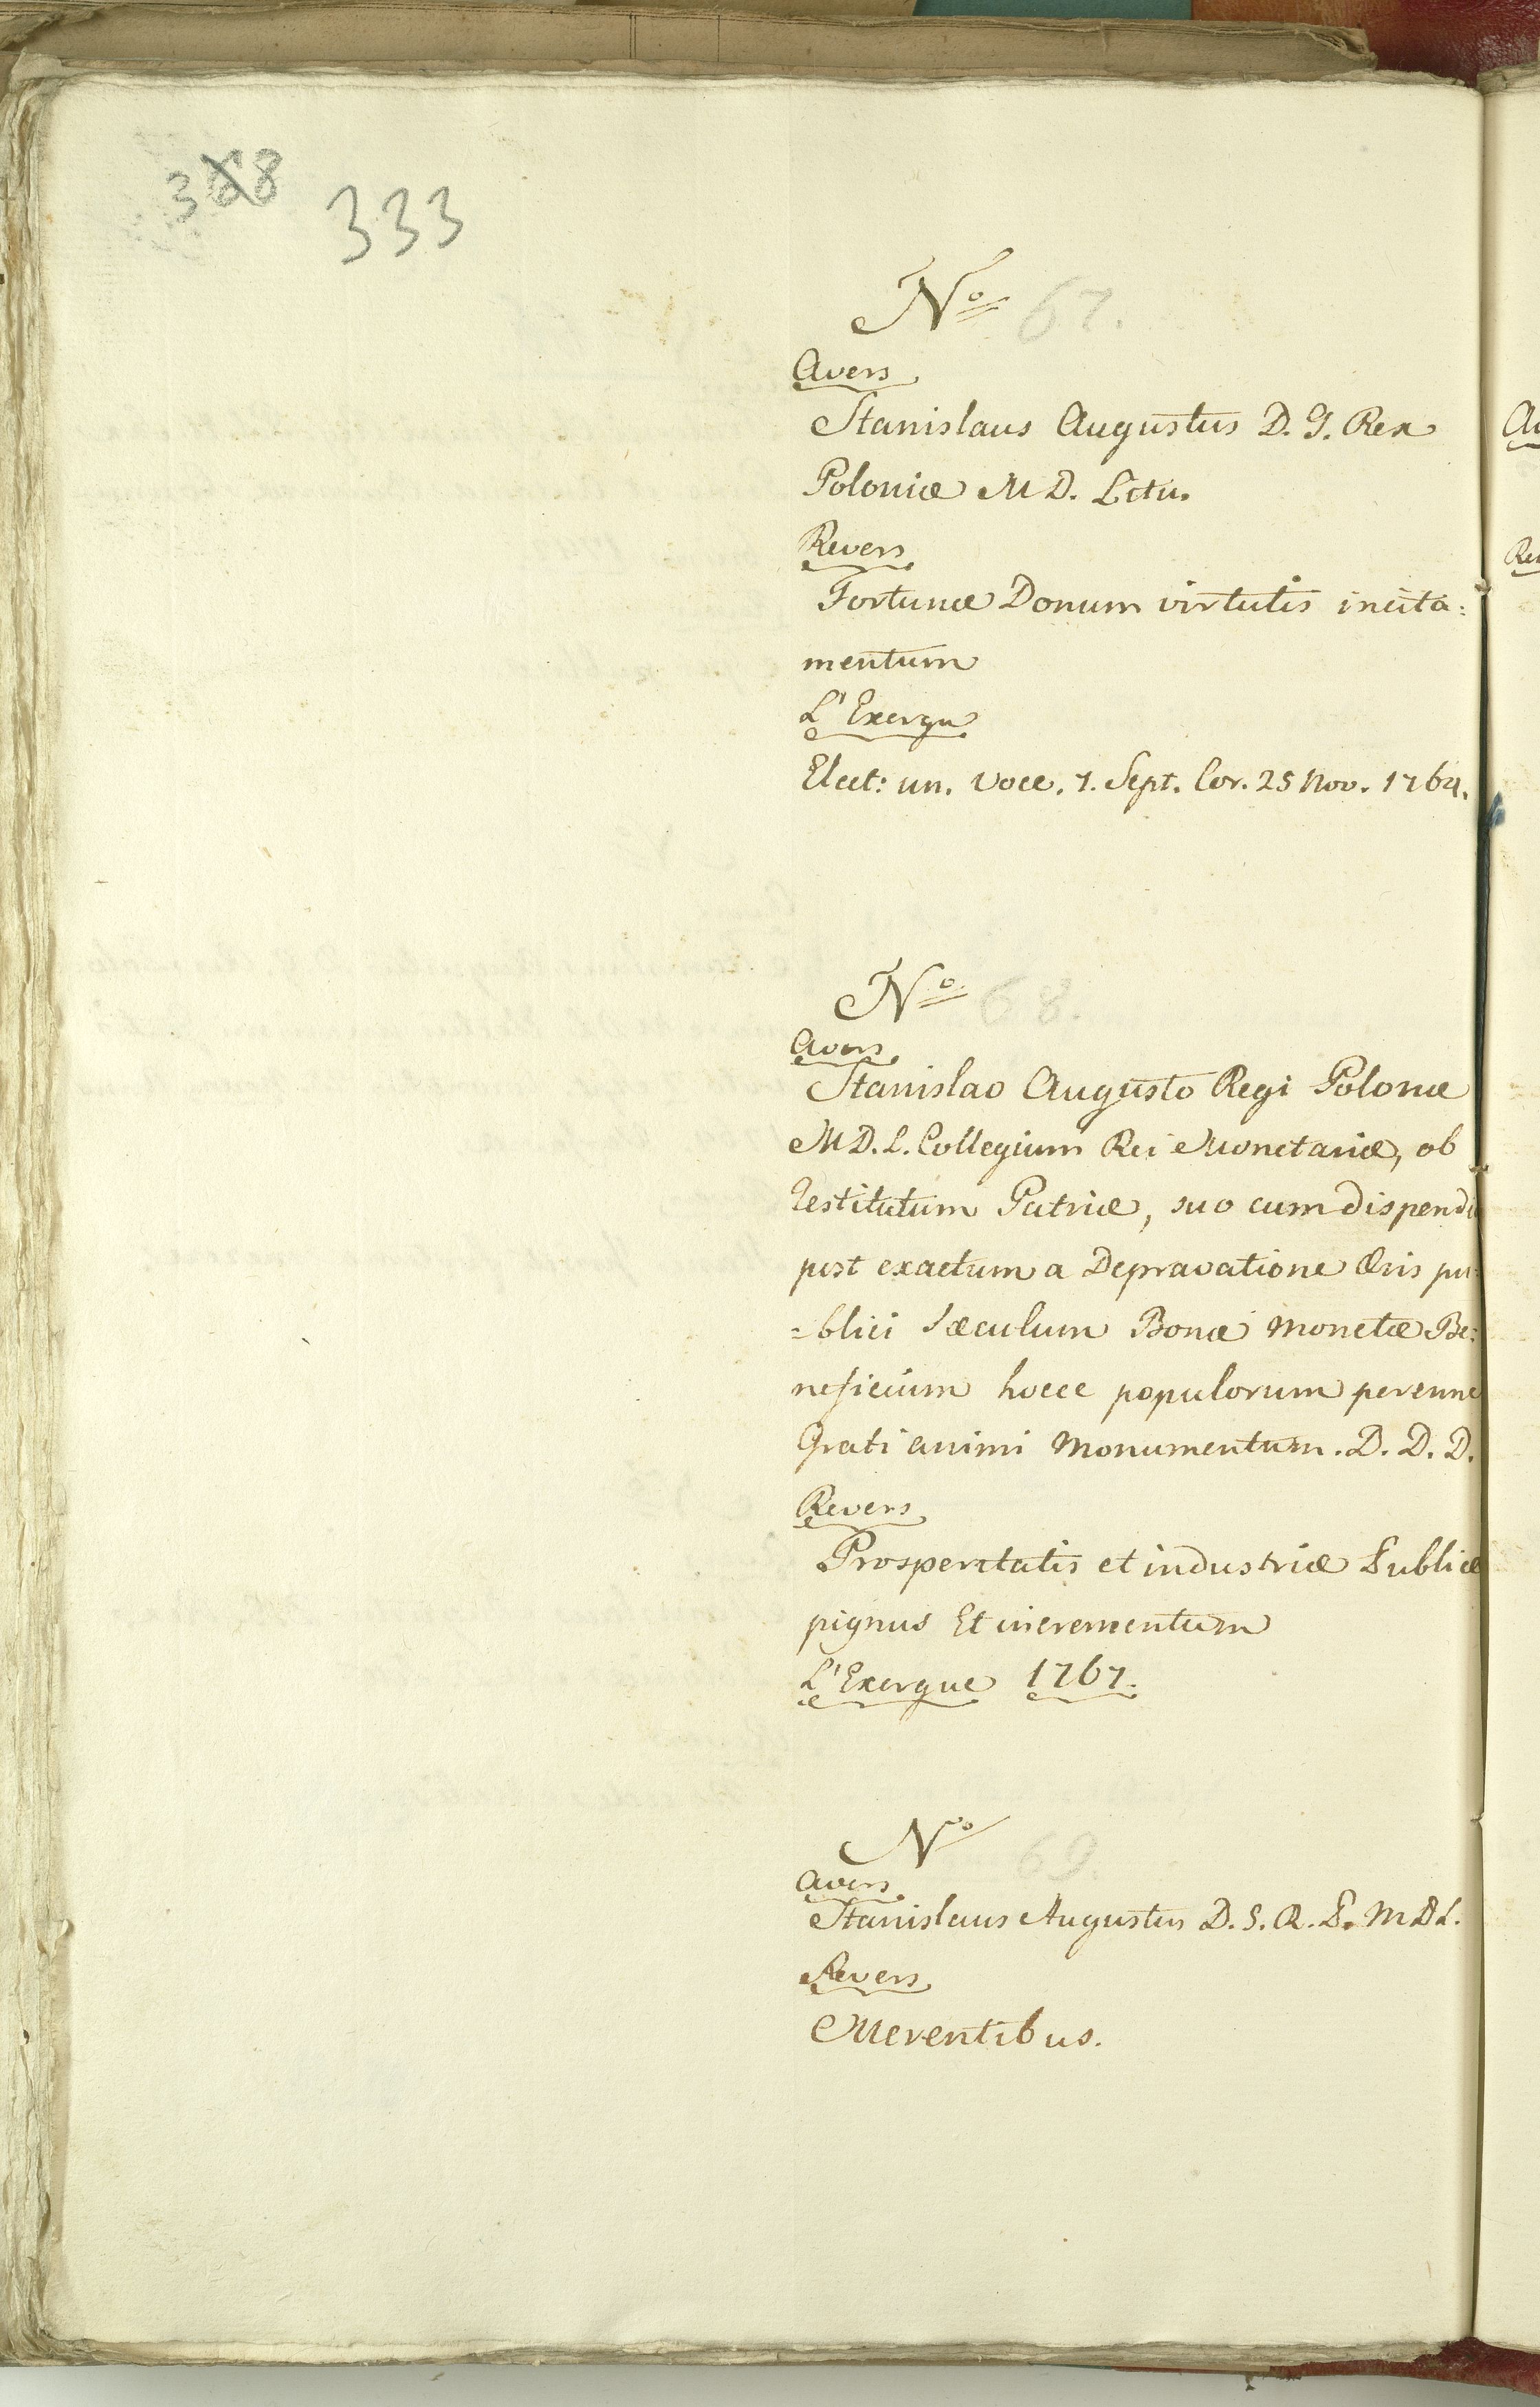 368 333
No 67.
Avers
Stanislaus Augustus D. G. Rex
Poloniæ M D. Litu.
Revers
Fortunæ Donum virtutis incita:
mentum
L'Exergu
Elect: un. voce. 7. Sept. Cor. 25 Nov. 1764.
No 68.
Avers
Stanislao Augusto Regi Polonæ
M D. L. Collegium Rei Monetariæ, ob
Restitutum Patriæ, suo cum dispendi
post exactum a Depravatione Æris pu=
=blici sæculum Bonæ Monetæ Be:
neficium hocce populorum perenne
Grati animi Monumentum. D. D. D.
Revers
Prosperitatis et industriæ Publicæ
pignus Et incrementum
L'Exergue 1767.
No 69.
Avers
Stanislaus Augustus D. G. R. P. M D L.
Revers
Merentibus.
Av
Rev